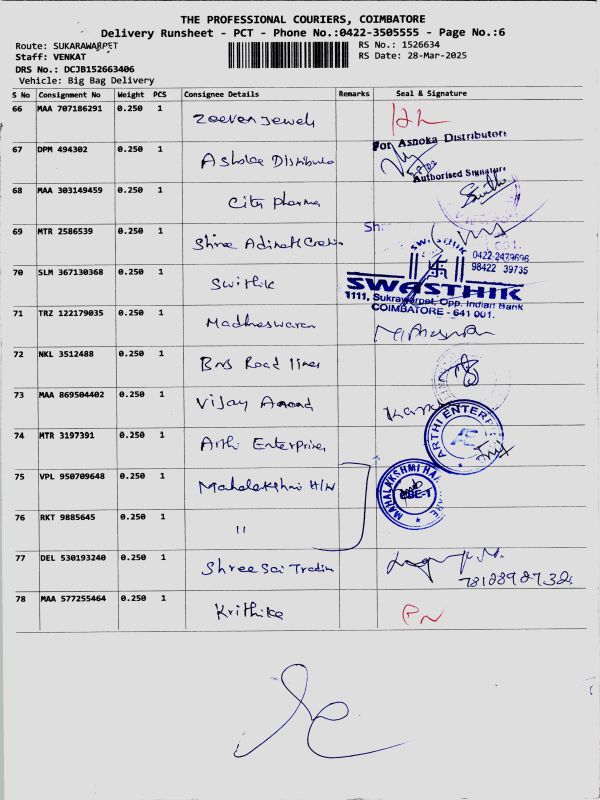 THE PROFESSIONAL COURIERS, COIMBATORE
Delivery Runsheet - PCT - Phone No.:0422-3505555 - Page No.:6
Route: SUKARAWARPET
Staff: VENKAT
DRS No.: DCJB152663406
Vehicle: Big Bag Delivery
RS No.: 1526634
RS Date: 28-Mar-2025
S No Consignment No Weight PCS Consignee Details Remarks Seal & Signature
66 MAA 707186291 0.250 1 Zeeven Jewels
67 DPM 494302 0.250 1 Ashoka Distributo
For Ashoka Distributors
Authorised Signature
68 MAA 303149459 0.250 1 City pharma
69 MTR 2586539 0.250 1 Shree Adinath Creation
70 SLM 367130368 0.250 1 Swithik
SWASTHIK
0422-2479696
98422 39735
SWASTHIK
1111, Sukrawarpet, Opp. Indian Bank
COIMBATORE - 641 001.
71 TRZ 122179035 0.250 1 Madheswaran
72 NKL 3512488 0.250 1 Bns Road lines
73 MAA 869504402 0.250 1 Vijay Anand
74 MTR 3197391 0.250 1 Arthi Enterprises
ARTHI ENTERPR
AE
75 VPL 950709648 0.250 1 Mahalakshmi H/W
MAHALAKSHMI HARDWARE
CBE-1
76 RKT 9885645 0.250 1 "
77 DEL 530193240 0.250 1 Shree Sai Tradin
78 MAA 577255464 0.250 1 Krithika